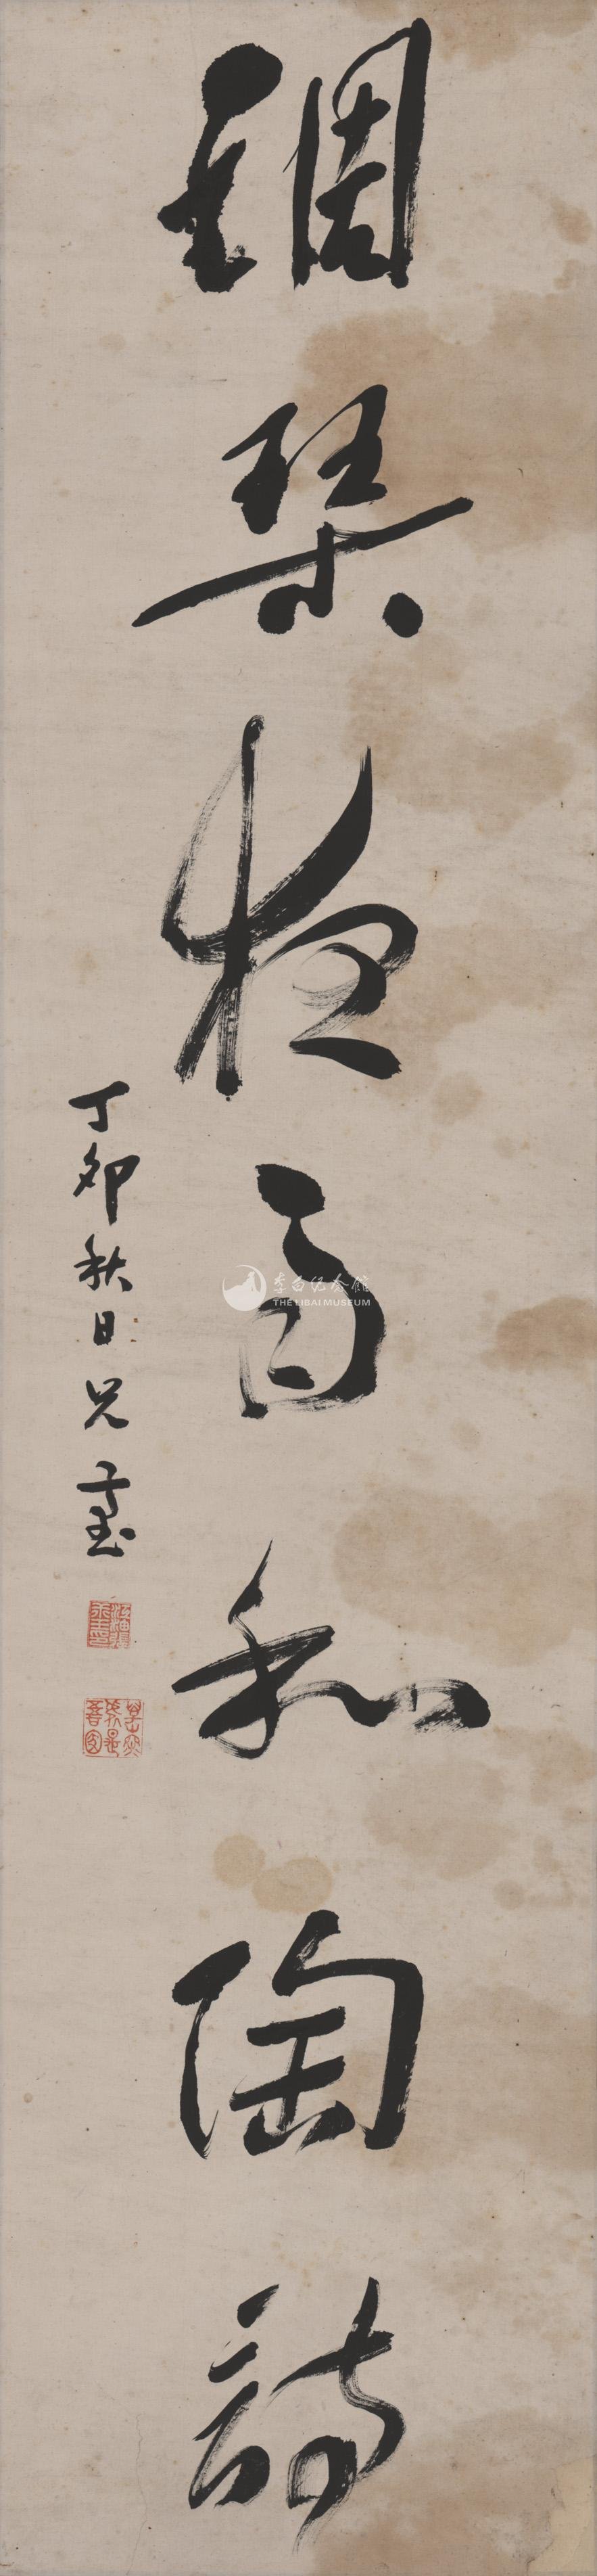 調琴夜雨和陶詩
丁卯秋日
李白纪念馆
THE LIBAI MUSEUM